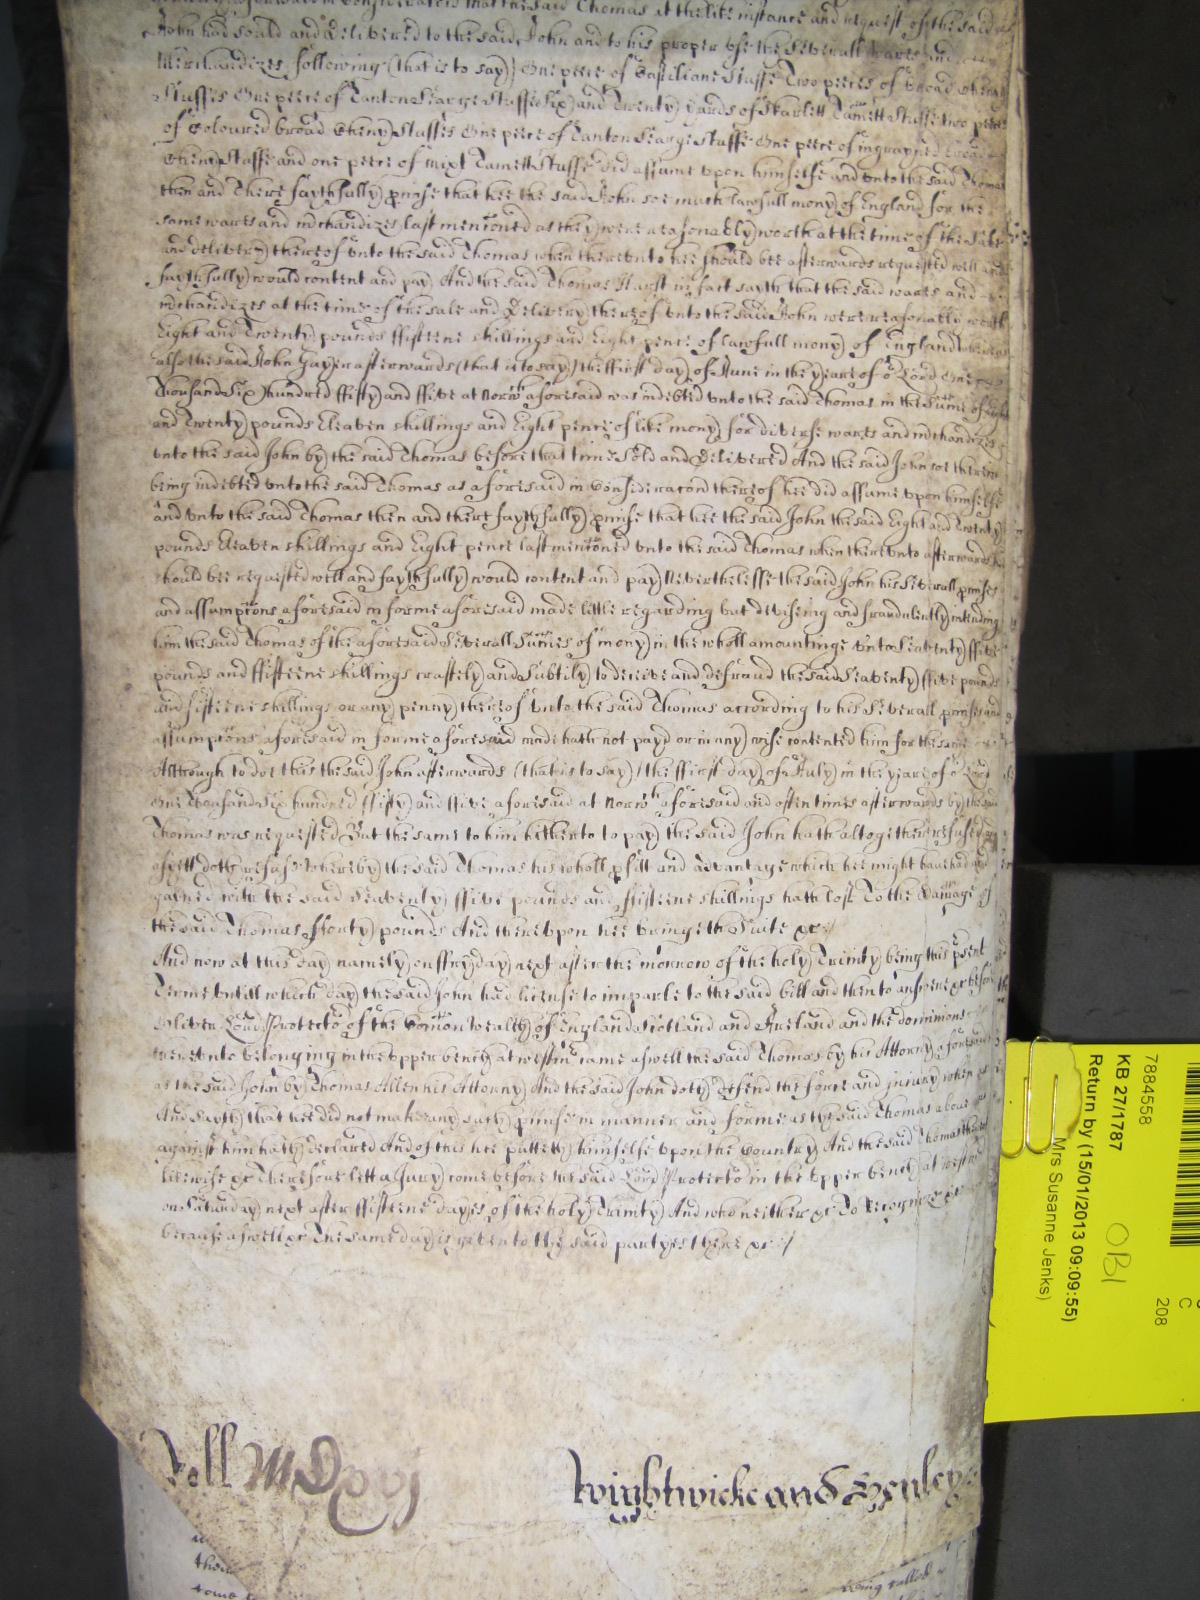 John had sould and delivered to the said John and to his proper vse the severall wares and
Merchandizes following (that is to say) One peece of Castiliane Stuffe Two peeces of broad
Stuffes One peece of Tanton Searge Stuffe Six and Twenty yards of Skarlett Tamett Stuffe two
of Coloured broad Cheny Stuffes One peece of Tanton Searge Stuffe One peece of ingrayned broad
Cheny Stuffe and one peece of mixt Tamett Stuffe did assume vpon himselfe and vnto the said Thomas
then and there faythfully pmise that hee the said John soe much lawfull mony of England for the
same wares and mchandizes last menconed as they were reasonably worth at the time of the Sale
and delivery thereof vnto the said Thomas when therevnto hee should bee afterwards requested well and
faythfully would content and pay And the said Thomas in fact sayth that the said wares and
mchandizes at the time of the sale and Delivery thereof vnto the said John were reasonably worth
Eight and Twenty pounds ffifteene shillings and Eight pence of lawfull mony of England
also the said John Gayer afterwards (that is to say) the ffirst day of June in the yeare of or Lord One
Thousand Six hundred ffifty and ffive at Norwch aforesaid was indebted vnto the said Thomas in the Sume of Eight
and Twenty pounds Eleaven shillings and Eight pence of like mony for diverse wares and mchandizes
vnto the said John by the said Thomas before that time Sold and Delivered And the said John soe thereof
being indebted vnto the said Thomas as aforesaid in Consideracon thereof hee did assume vpon himselfe
and vnto the said Thomas then and there faythfully pmise that hee the said John the said Eight and Twenty
pounds Eleaven shillings and Eight pence last menconed vnto the said Thomas when therevnto afterwards hee
should bee requested well and faythfully would content and pay Neverthelesse the said John his severall pmises
and assumpcons aforesaid in forme aforesaid made little regarding but devising and fraudulently intending
him the said Thomas of the aforesaid Severall Sumes of mony in the wholl amountinge vnto Seaventy ffive
pounds and ffifteene shillings craftely and Subtily to deceive and defraud the said Seaventy ffive pounds
and fifteene shillings or any penny thereof vnto the said Thomas according to his Severall pmises and
assumpcons aforesaid in forme aforesaid made hath not payd or in any wise contented him for the same
Although to doe this the said John afterwards (that is to say) the ffirst day of July in the yeare of or Lord
One Thousand Six hundred ffifty and ffive aforesaid at Norwch aforesaid and often times afterwards by the said
Thomas was requested But the same to him hitherto to pay the said John hath altogether refused and
as yett doth refuse Whereby the said Thomas his wholl pfitt and advantage which hee might have had and
gayned with the said Seaventy ffive pounds and ffifteene shillings hath lost To the Damage of
the said Thomas fforty pounds And therevpon hee bringeth Suite &c
And now at this day namely on ffryday next after the morrow of the holy Trinity being this psent
Terme vntill which day the said John had license to imparle to the said bill and then to answere &c before
Oliver Lord Protector of the Comon Wealth of England Scotland and Ireland and the dominions
therevnto belonging in the vpper bench at westmr came aswell the said Thomas by his Attorny aforesaid
as the said John by Thomas Allen his Attorny And the said John doth defend the force and injury when &c
And Sayth that hee did not make any such pmise in manner and forme as the said Thomas above
against him hath declared And of this hee putteth himselfe vpon the Country And the said Thomas
likewise &c Therefore lett a Jury come before the said Lord Protector in the vpper bench at westmr
on Saturday next after ffifteene dayes of the holy Trinity And who neither &c To Recognize &c
because aswell &c The same day is given to the said partyes there &c
Roll MDxvj
Wightwicke and Henley
being called
7884558
KB 27/1787
Return by (15/01/2013 09:09:55)
Mrs Susanne Jenks)
OBI
C
208